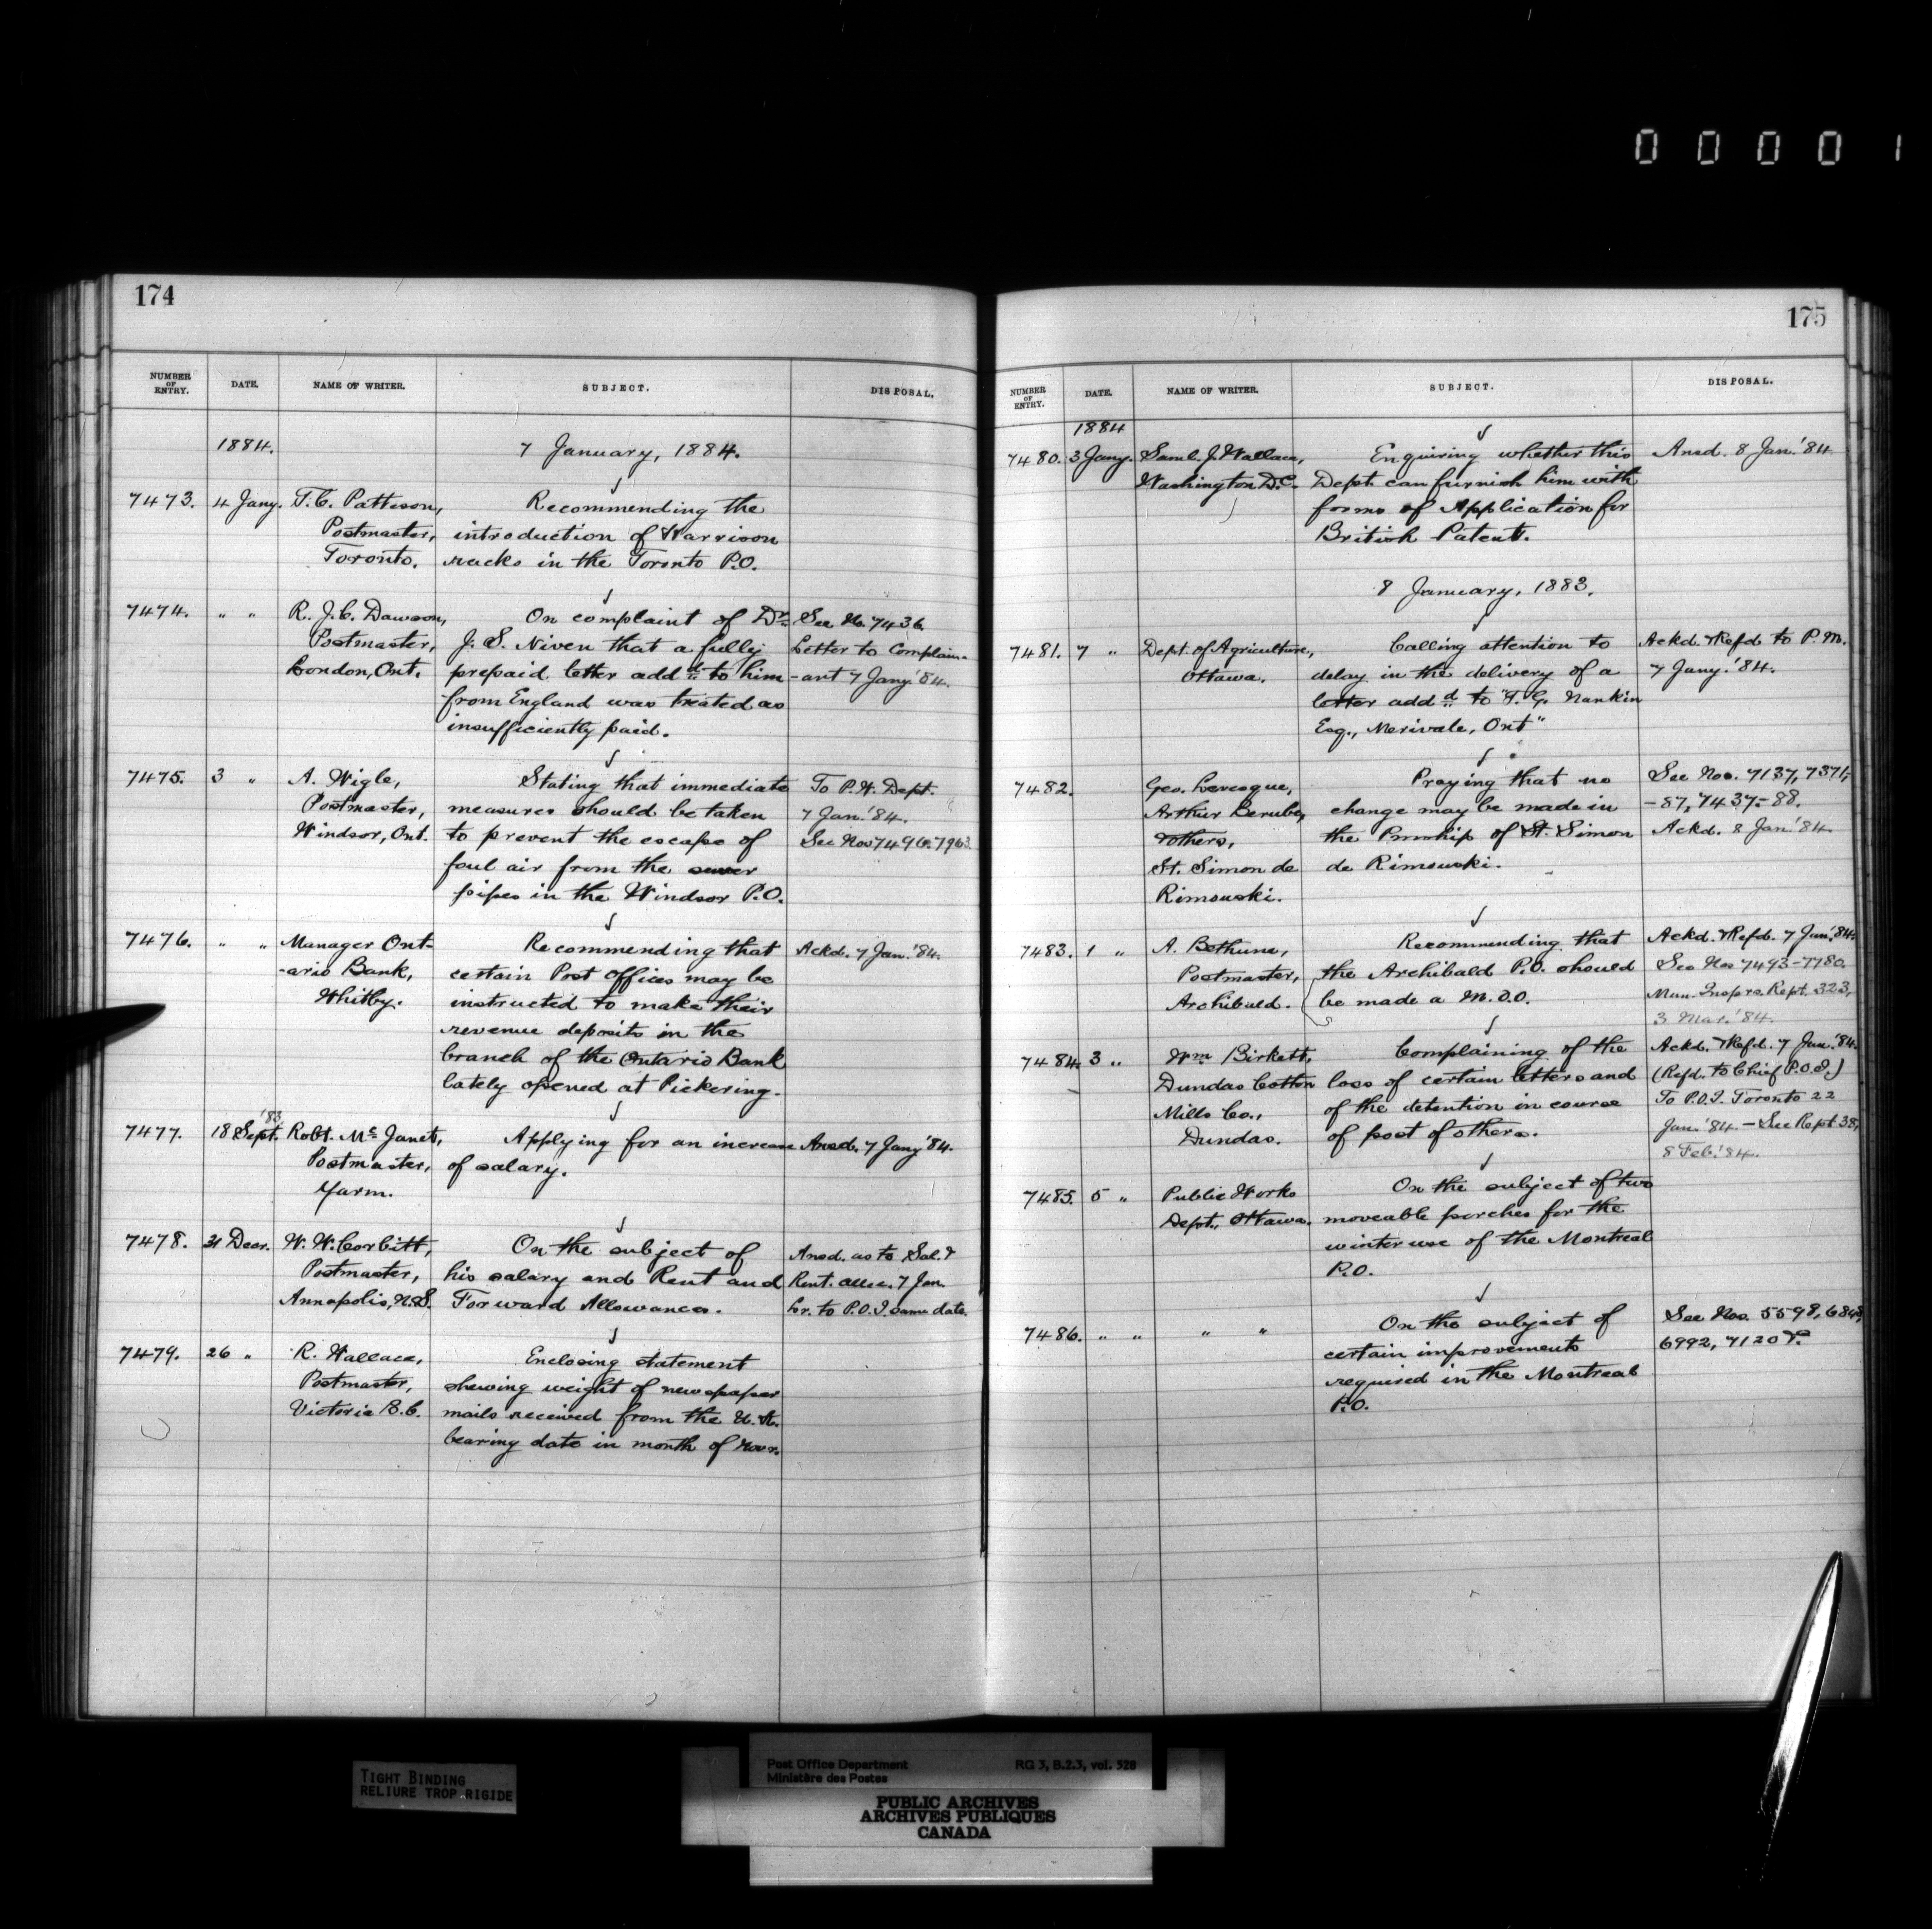 00001
174
NUMBER OF ENTRY. DATE. NAME OF WRITER. SUBJECT. DISPOSAL.
1884. 7 January, 1884.
7473. 4 Jany. T. C. Patteson, Recommending the
Postmaster, introduction of Harrison
Toronto. racks in the Toronto P.O.
7474. " " R. J. C. Dawson, On complaint of Dr. See No. 7436.
Postmaster, J. S. Niven that a fully Letter to Complain-
London, Ont. prepaid letter addd. to him -ant 7 Jany. '84.
from England was treated as
insufficiently paid.
7475. 3 " A. Wigle, Stating that immediate To P.W. Dept.
Postmaster, measures should be taken 7 Jan. '84.
Windsor, Ont. to prevent the escape of See Nos 7496. 7963.
foul air from the sewer
pipes in the Windsor P.O.
7476. " " Manager Ont- Recommending that Ackd. 7 Jan. '84.
-ario Bank, certain Post Offices may be
Whitby. instructed to make their
revenue deposits in the
branch of the Ontario Bank
lately opened at Pickering.
'83
7477. 18 Sept. Robt. Mc Janet, Applying for an increase Ansd. 7 Jany '84.
Postmaster, of salary.
Yarm.
7478. 31 Decr. W. W. Corbitt, On the subject of Ansd. as to Sal. &
Postmaster, his salary and Rent and Rent. allce. 7 Jan.
Annapolis, N.S. Forward Allowances. Lr. to P.O.I. same date.
7479. 26 " R. Wallace, Enclosing statement
Postmaster, shewing weight of newspaper
Victoria B.C. mails received from the U.S.
bearing date in month of Novr.
175
NUMBER OF ENTRY. DATE. NAME OF WRITER. SUBJECT. DISPOSAL.
1884
7480. 3 Jany. Saml. J. Wallace, Enquiring whether this Ansd. 8 Jan. '84
Washington D.C. Dept. can furnish him with
forms of Application for
British Patent.
8 January, 1883.
7481. 7 " Dept. of Agriculture, Calling attention to Ackd. & Refd to P.M.
Ottawa. delay in the delivery of a 7 Jany. '84.
letter addd. to "T. G. Nankin
Esq., Merivale, Ont"
7482. Geo. Levesque, Praying that no See Nos. 7137, 7371,
Arthur Berube, change may be made in -87, 7437-88.
& others, the Pmship of St. Simon Ackd. 8 Jan. '84
St. Simon de de Rimouski.
Rimouski.
7483. 1 " A. Bethune, Recommending that Ackd. & Refd. 7 Jan. '84.
Postmaster, the Archibald P.O. should See Nos 7493-7780.
Archibald. be made a M.O.O. Man. Insprs. Rept. 323,
3 Mar. '84.
7484. 3 " Wm. Birkett, Complaining of the Ackd. & Refd. 7 Jan. '84.
Dundas Cotton loss of certain letters and (Refd. to Chief P.O.I.)
Mills Co., of the detention in course To P.O.I. Toronto 22
Dundas. of post of others. Jan. '84. - See Rept. 38,
8 Feb. '84.
7485. 5 " Public Works On the subject of two
Dept., Ottawa. moveable porches for the
winter use of the Montreal
P.O.
7486. " " " " On the subject of See Nos. 5598, 6848,
certain improvements 6992, 7120
required in the Montreal
P.O.
TIGHT BINDING
RELIURE TROP RIGIDE
Post Office Department RG 3, B.2.3, vol. 528
Ministère des Postes
PUBLIC ARCHIVES
ARCHIVES PUBLIQUES
CANADA